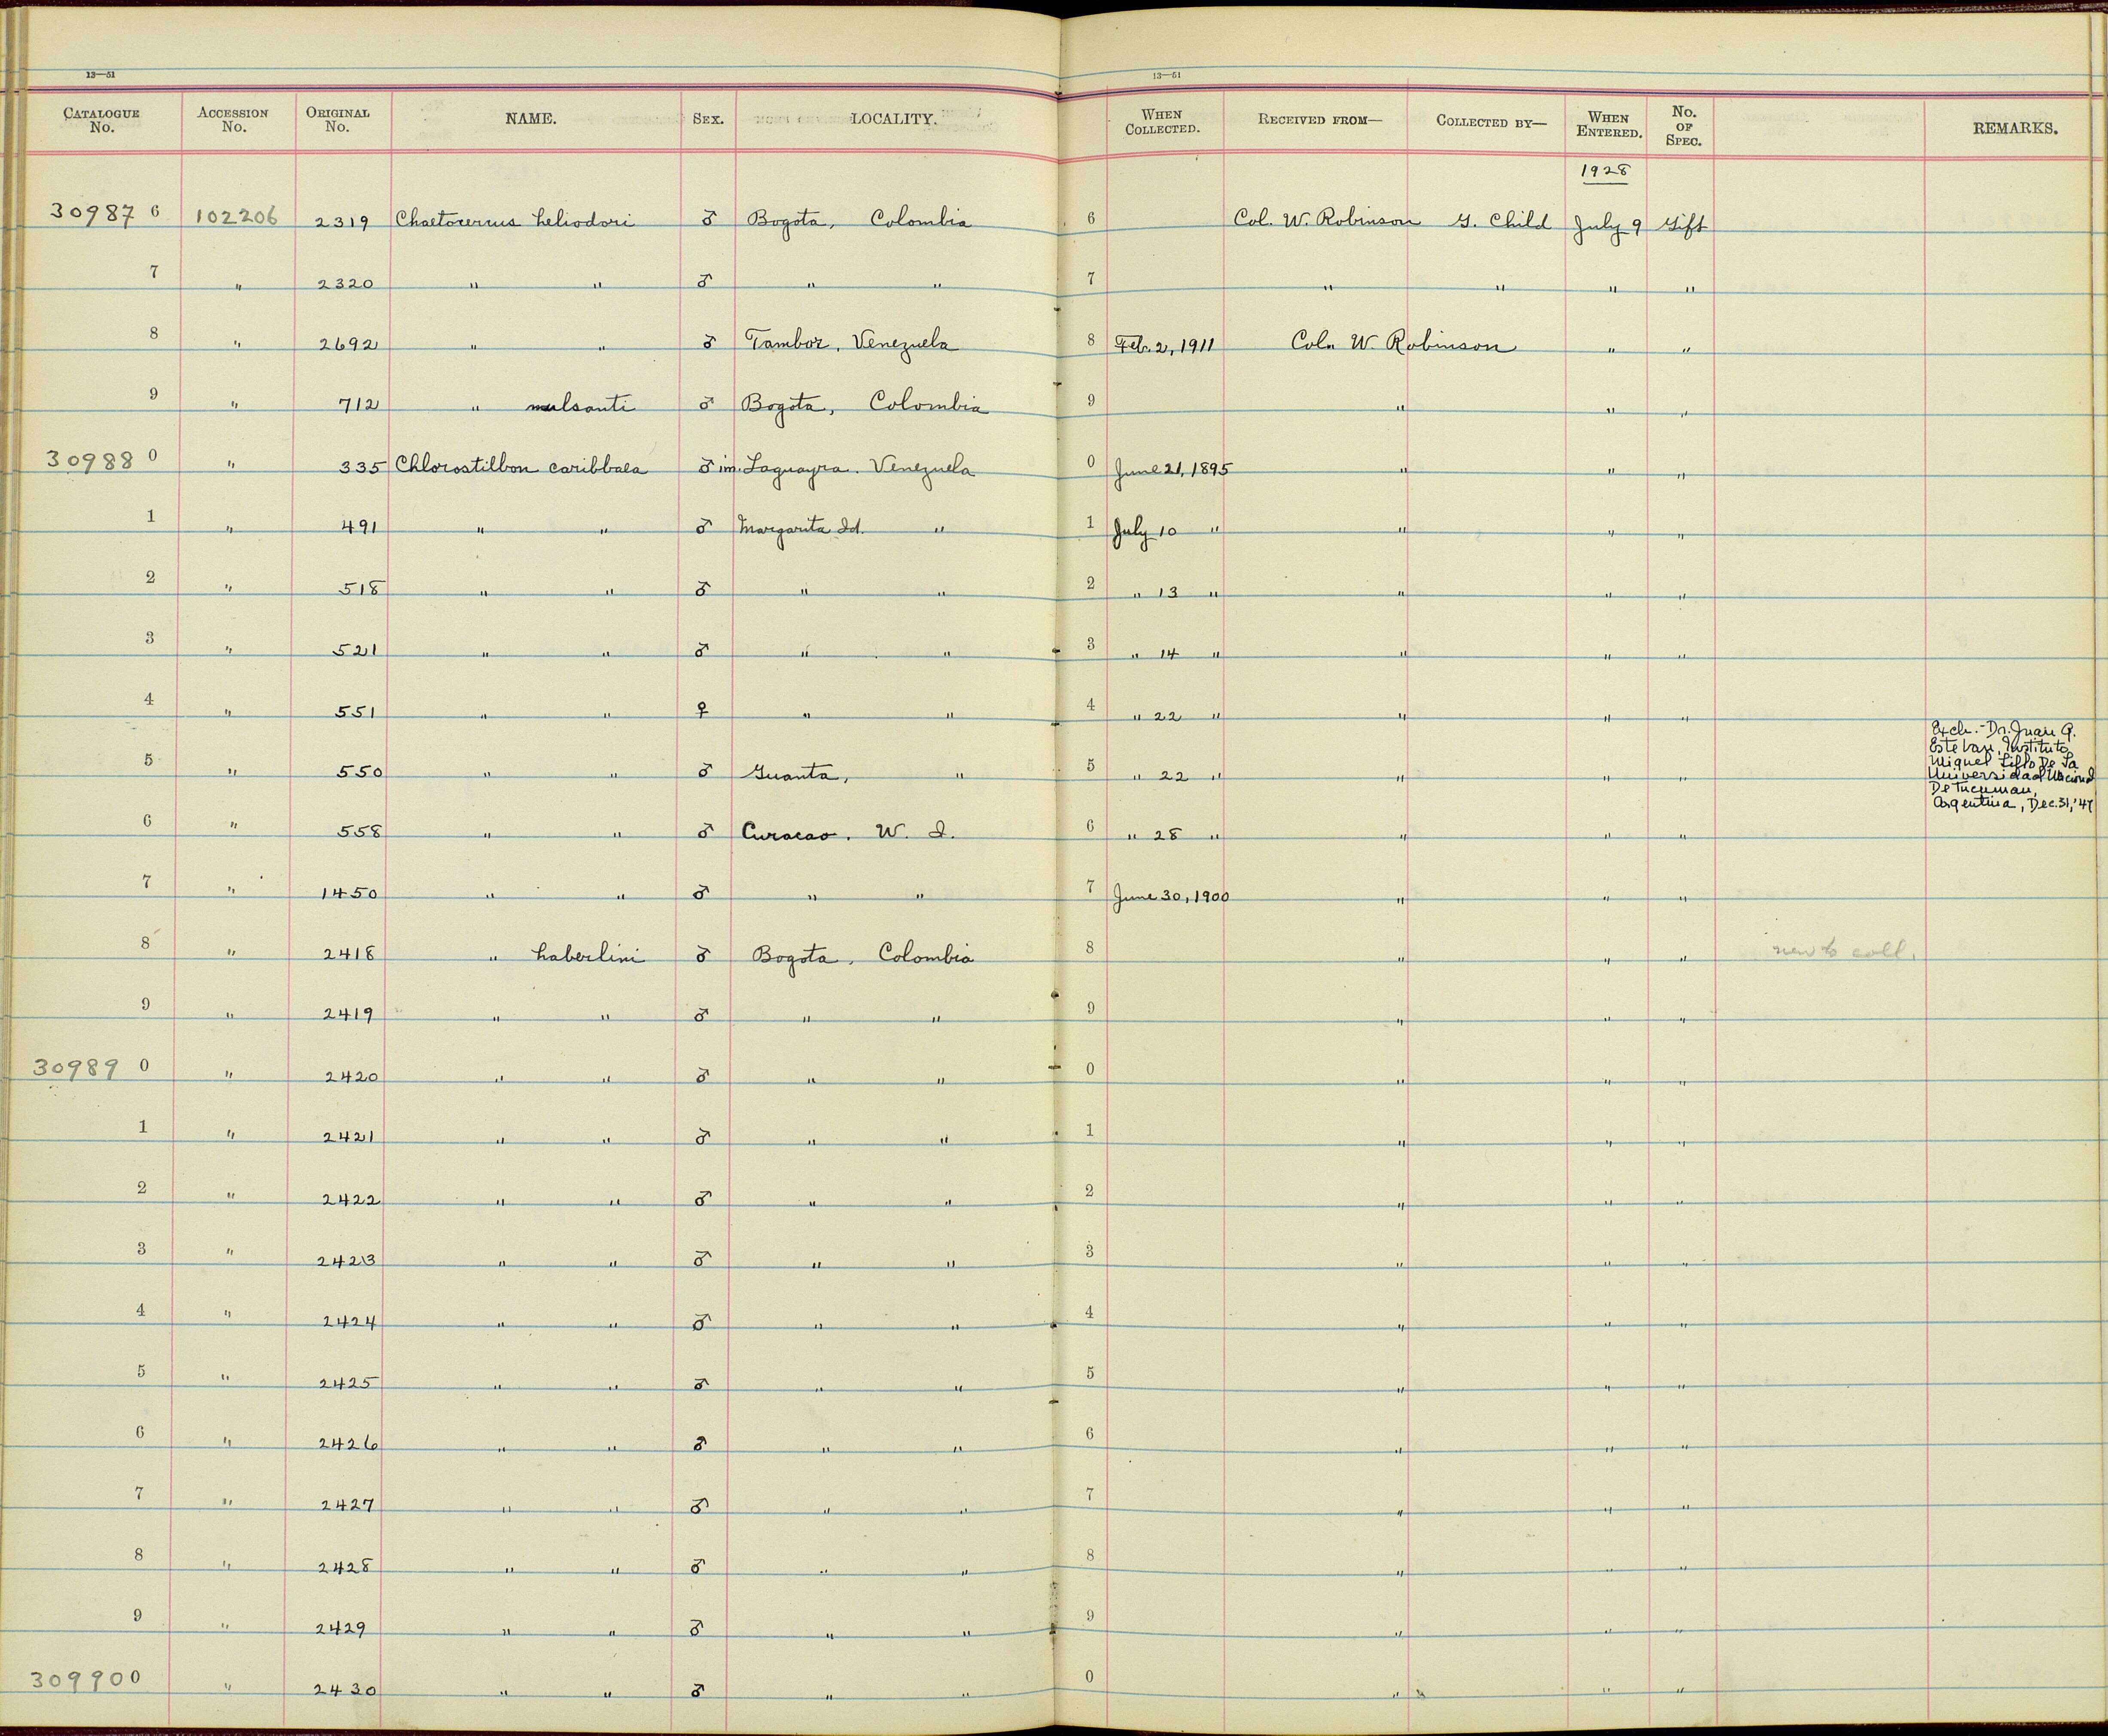 13—51 13—51
CATALOGUE No. ACCESSION No. ORIGINAL No. NAME. SEX. LOCALITY. WHEN COLLECTED. RECEIVED FROM— COLLECTED BY— WHEN ENTERED. No. OF SPEC. REMARKS.
1928
30987 6 102206 2319 Chaetocercus heliodori ♂ Bogota, Colombia 6 Col. W. Robinson G. Child July 9 Gift
7 " 2320 " " ♂ " " 7 " " " "
8 " 2692 " " ♂ Tambor, Venezuela 8 Feb. 2, 1911 Col. W. Robinson " "
9 " 712 " mulsanti ♂ Bogota, Colombia 9 " " "
30988 0 " 335 Chlorostilbon caribbaea ♂ im. Laguayra. Venezuela 0 June 21, 1895 " " "
1 " 491 " " ♂ Margarita Id. " 1 July 10 " " " "
2 " 518 " " ♂ " " 2 " 13 " " " "
3 " 521 " " ♂ " " 3 " 14 " " " "
4 " 551 " " ♀ " " 4 " 22 " " " "
5 " 550 " " ♂ Guanta, " 5 " 22 " " " " Exch.- Dr. Juan G.
Esteban, Instituto
Miguel Lillo De La
Universidad Nacional
De Tucuman,
Argentina, Dec. 31, '47
6 " 558 " " ♂ Curacao. W. I. 6 " 28 " " " "
7 " 1450 " " ♂ " " 7 June 30, 1900 " " "
8 " 2418 " haberlini ♂ Bogota, Colombia 8 " " " new to coll.
9 " 2419 " " ♂ " " 9 " " "
30989 0 " 2420 " " ♂ " " 0 " " "
1 " 2421 " " ♂ " " 1 " " "
2 " 2422 " " ♂ " " 2 " " "
3 " 2423 " " ♂ " " 3 " " "
4 " 2424 " " ♂ " " 4 " " "
5 " 2425 " " ♂ " " 5 " " "
6 " 2426 " " ♂ " " 6 " " "
7 " 2427 " " ♂ " " 7 " " "
8 " 2428 " " ♂ " " 8 " " "
9 " 2429 " " ♂ " " 9 " " "
30990 0 " 2430 " " ♂ " " 0 " " "